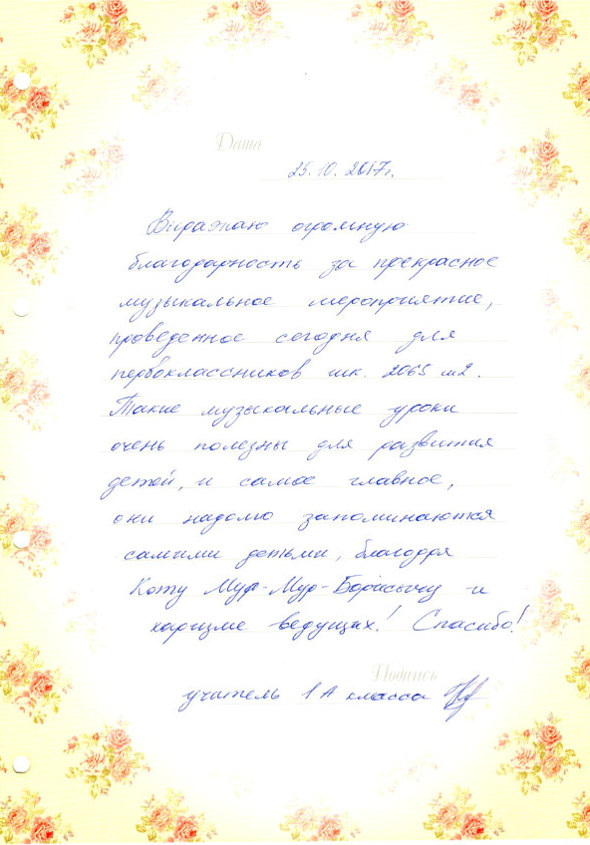 Дата
25.10.2017г.
Выражаю огромную
благодарность за прекрасное
музыкальное мероприятие,
проведенное сегодня для
первоклассников шк. 2065 м2.
Такие музыкальные уроки
очень полезны для развития
детей, и самое главное,
они надолго запоминаются
самими детьми, благодря
Коту Мур-Мур-Борисычу и
харизме ведущих! Спасибо!
Подпись
учитель 1А класса